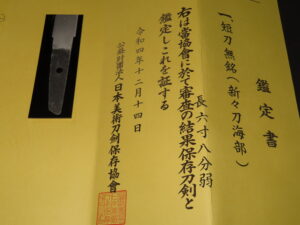 鑑定書
一、短刀無銘(新々刀海部)
長六寸八分弱
右は當協會に於て審査の結果保存刀剣と
鑑定しこれを証する
令和四年十二月十四日
公益財団法人日本美術刀剣保存協會